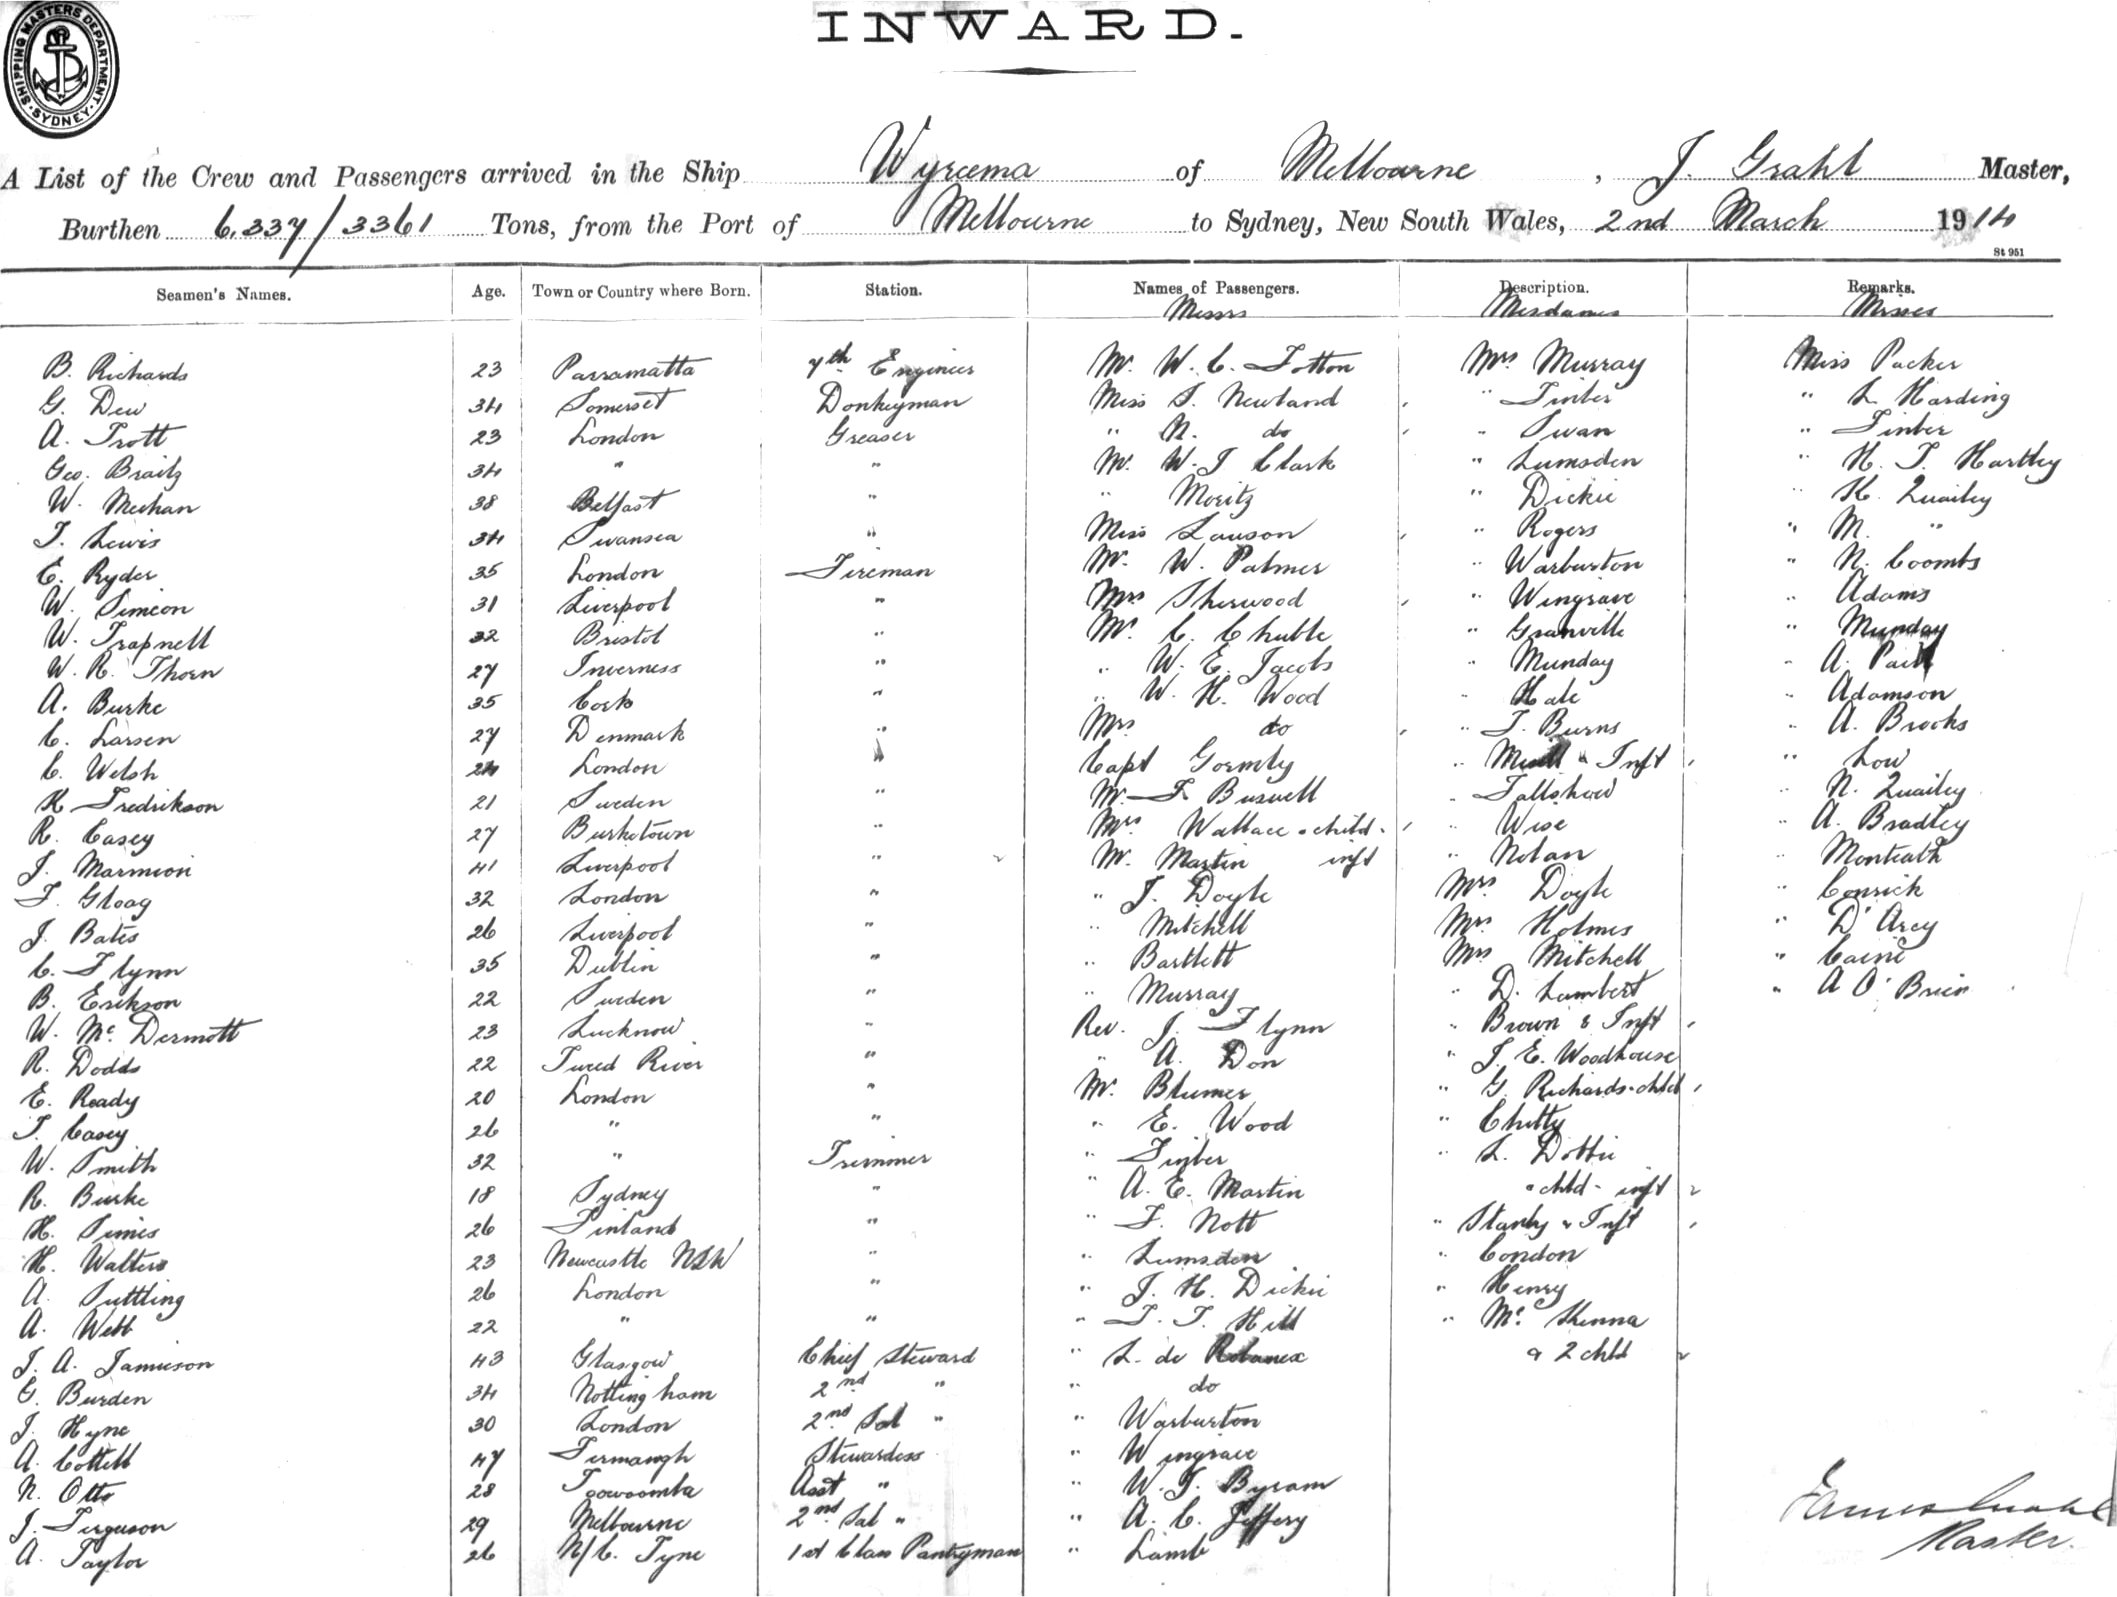 SHIPPING MASTERS DEPARTMENT. SYDNEY
INWARD.
A List of the Crew and Passengers arrived in the Ship Wyreema of Melbourne, J. Grahl Master,
Burthen 6,337/3361 Tons, from the Port of Melbourne to Sydney, New South Wales, 2nd March 1914
St 951
Seamen's Names. Age. Town or Country where Born. Station. Names of Passengers. Description. Remarks.
Messrs Mesdames Misses
B. Richards 23 Parramatta 7th Engineer Mr. W. C. Totton Mrs Murray Miss Packer
G. Dew 34 Somerset Donkeyman Miss S. Newland " Finber " L. Harding
A. Trott 23 London Greaser " N. do " Swan " Finber
Geo. Braitz 34 " " Mr. W. J Clark " Lumsden " H. T. Hartley
W. Meehan 38 Belfast " " Moritz " Dickie " K. Quailey
T. Lewis 34 Swansea " Miss Lawson " Rogers " M. "
E. Ryder 35 London Fireman Mr. W. Palmer " Warburton " N. Coombs
W. Simeon 31 Liverpool " Mrs Sherwood " Wingrave " Adams
W. Trapnell 32 Bristol " Mr. C. Chubb " Granville " Munday
W. R. Thorn 27 Inverness " " W. E. Jacobs " Munday " A.
A. Burke 35 Cork " " W. H. Wood " Hale " Adamson
C. Larsen 27 Denmark " Mrs do " T. Burns " A. Brooks
C. Welsh 24 London " Capt Gormly " & Inft " Low
K Fredrikson 21 Sweden " Mr. F Buswell " Fallshow " N. Quailey
R. Casey 27 Burketown " Mrs Wallace & child " Wise " A. Bradley
J. Marmion 41 Liverpool " Mr. Martin inft " Nolan " Monteath
F. Gloag 32 London " " J. Doyle Mrs Doyle " Conrick
J. Bates 26 Liverpool " " Mitchell Mrs Holmes " D'Arcy
C. Flynn 35 Dublin " " Bartlett Mrs Mitchell " Caine
B. Erikson 22 Sweden " " Murray " D. Lambert " A O'Brien
W. McDermott 23 Lucknow " Rev. J. Flynn " Brown & Inft
R. Dodds 22 Tweed River " " A. Don " J. E. Woodhouse
E. Ready 20 London " Mr. Blumer " G. Richards & chld
T. Casey 26 " " " E. Wood " Chitty
W. Smith 32 " Trimmer " Finber " L. Dobbie
R. Burke 18 Sydney " " A. E. Martin & chld & inft
H. Simes 26 Finland " " F. Nott " Stanly & Inft
H. Walters 23 Newcastle NSW " " Lumsden " Condon
A. Suttling 26 London " " J. H. Dickie " Henry
A. Webb 22 " " " T. T. Hill " McKenna
J. A. Jamieson 43 Glasgow Chief Steward " L. de & 2 chld
G. Burden 34 Nottingham 2nd " " do
J. Hyne 30 London 2nd Sal " " Warburton
A. Cottell 47 Fermanagh Stewardess " Wingrave
N. Otto 28 Toowoomba Asst " " W. J. Byram
J. Ferguson 29 Melbourne 2nd Sal " " A. C. Jeffery
A. Taylor 26 N/C. Tyne 1st Class Pantryman " Lamb
James Grahl
Master.